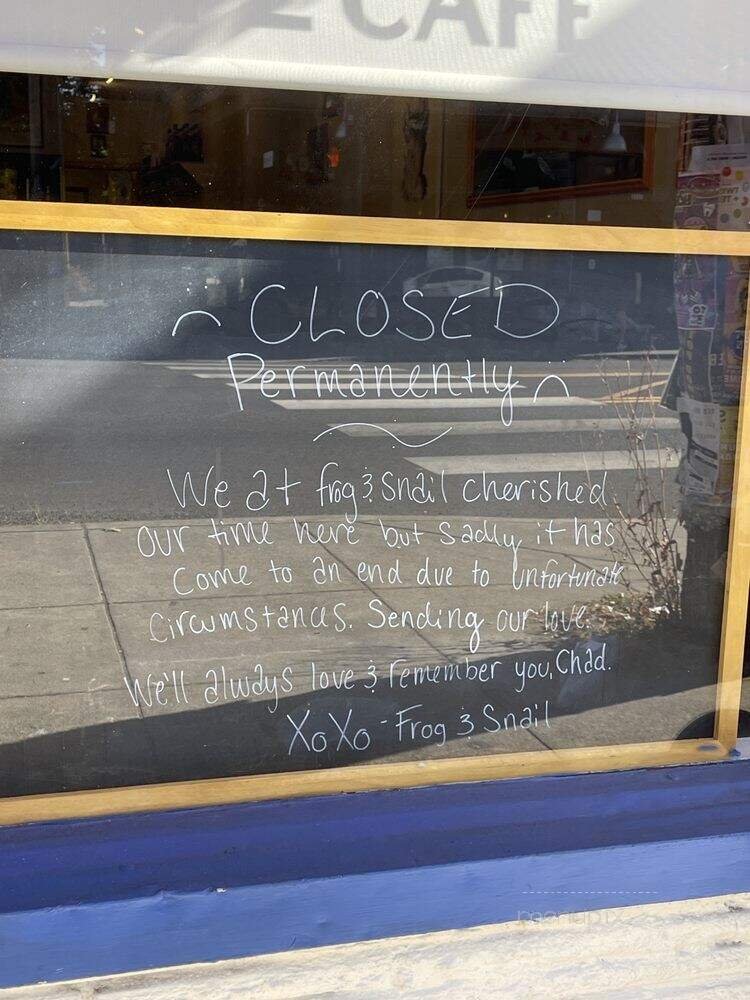 CAFE
CLOSED
Permanently
We at frog & Snail cherished
our time here but sadly it has
come to an end due to unfortunate
circumstances. Sending our love.
We'll always love & remember you, Chad.
XoXo - Frog & Snail
menupix